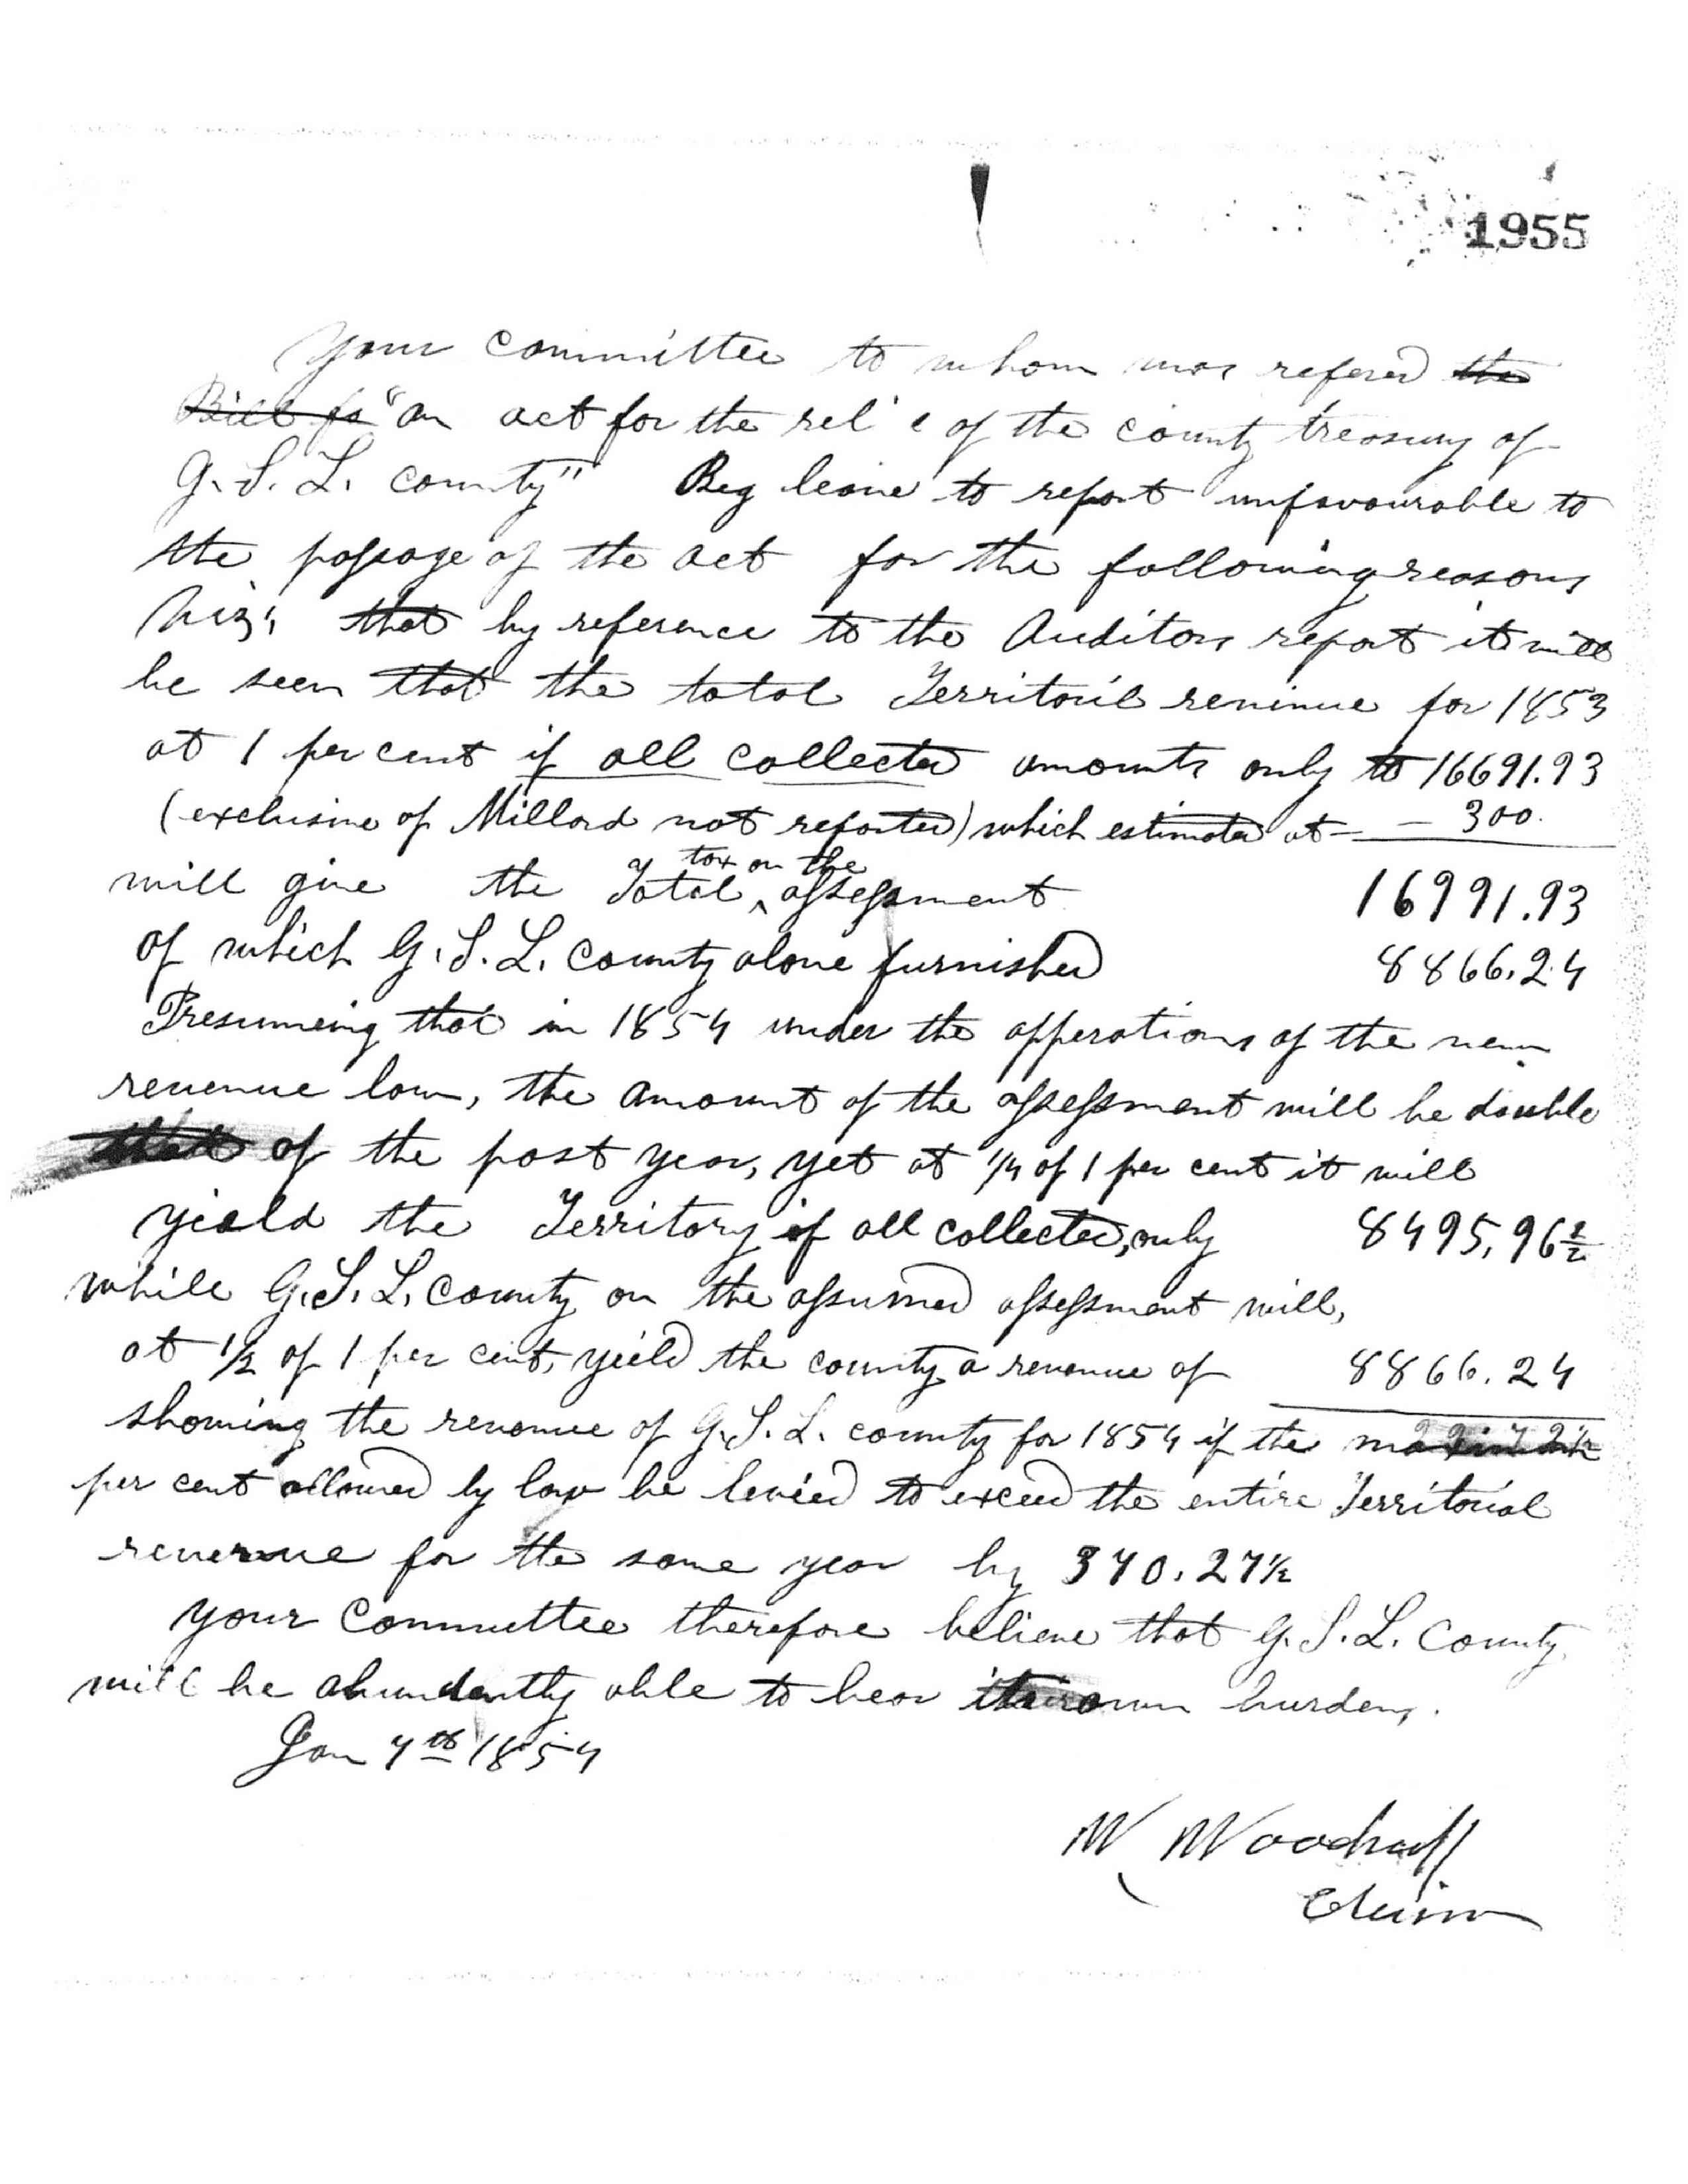 1955
Your committee to whom was refered the
Bill fo "An act for the rel e of the county treasury of
G. S. L. county" Beg leave to report unfavourable to
the passage of the act for the following reasons
Viz; that by reference to the Auditors report it will
be seen that the total Territoril reninue for 1853
at 1 per cent if all collected amounts only to 16691.93
(exclusive of Millard not reported) which estimated at — — 300.
tax on the
will give the Total ^ assessment 16991.93
of which G. S. L. County alone furnished 8866.24
Presumeing that in 1854 under the opperations of the new
revenue law, the amount of the assessment will be double
that of the past year, yet at 1/4 of 1 per cent it will
yield the Territory if all collected, only 8495.96 1/2
while G. S. L. County on the assumed assessment will,
at 1/2 of 1 per cent, yield the county a revenue of 8866.24
showing the revenue of G. S. L. county for 1854 if the
per cent allowed by law be levied to exceed the entire Territorial
revenue for the same year by 370.27 1/2
Your Committee therefore believe that G. S. L. County
will be abundantly able to bear own burdens.
Jan 7th 1854
W Woodruff
Chirm